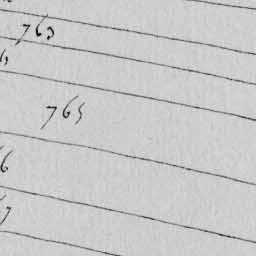 763
765
6
7